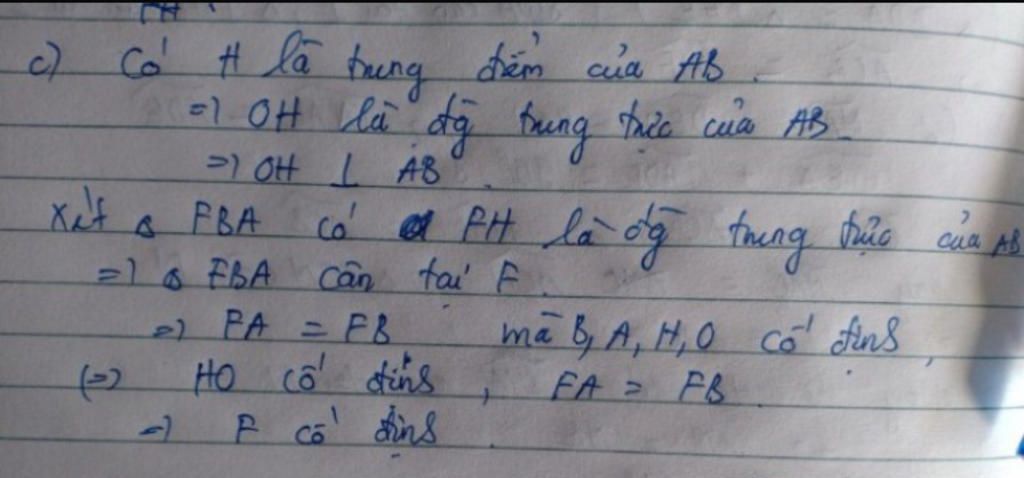 c) Có H là trung điểm của AB.
=> OH là đg trung trực của AB
=> OH ⊥ AB.
Xét Δ FBA có FH là đg trung trực của AB
=> Δ FBA cân tại F.
=> FA = FB mà B, A, H, O cố định,
(=> HO cố định, FA = FB.
=> F cố định.